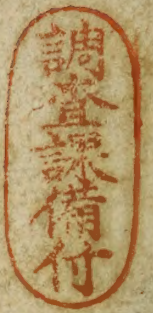 調査課備付